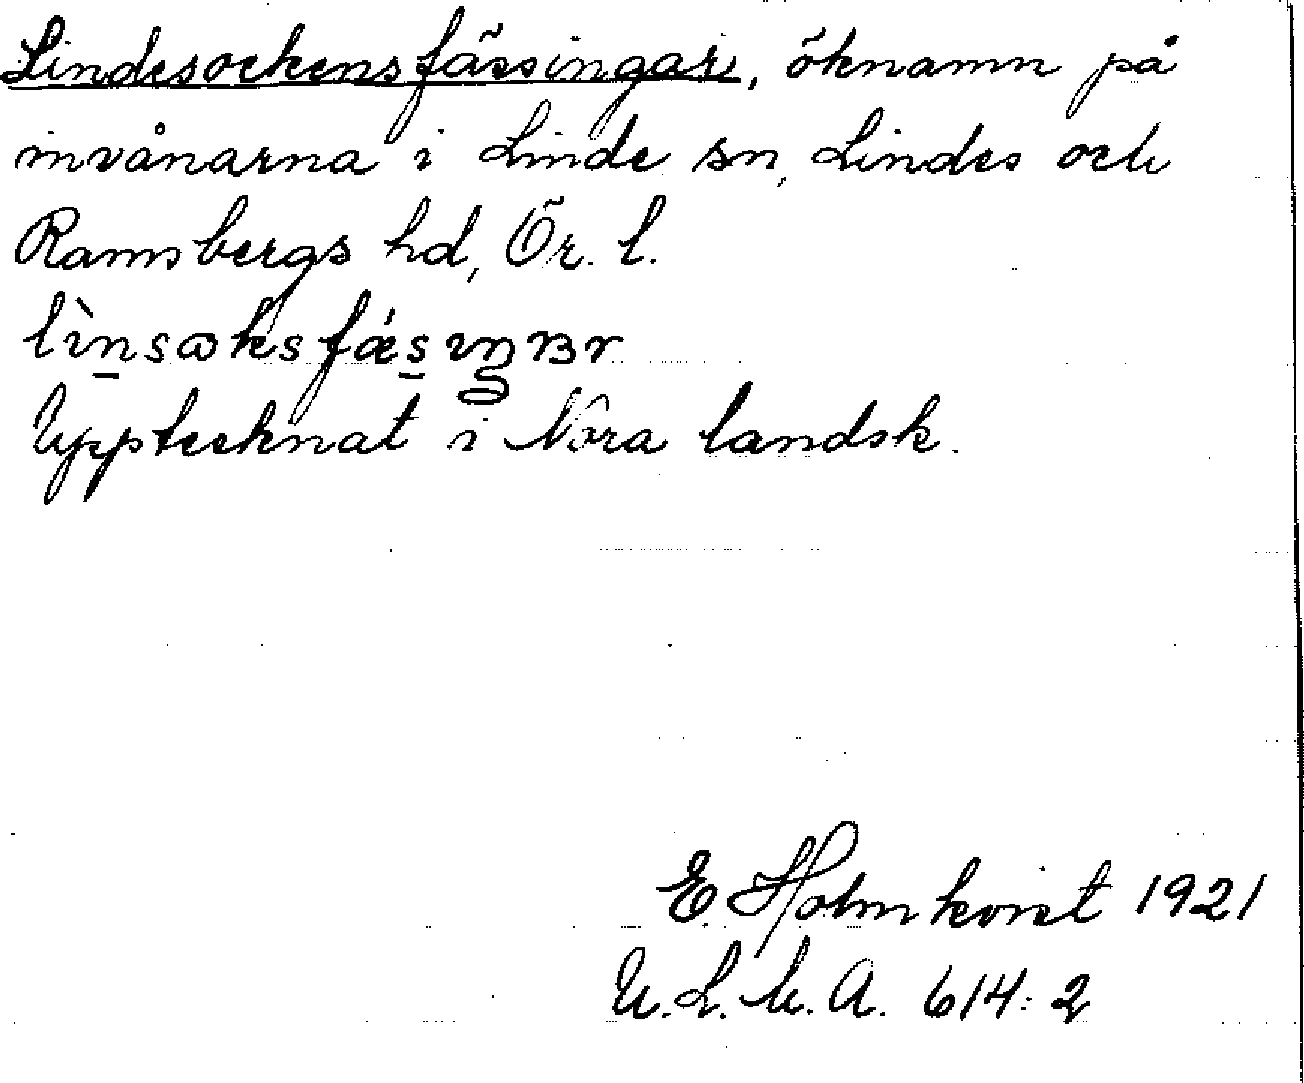 Lindesockensfässingar, öknamn på
invånarna i Linde sn, Lindes och
Ramsbergs hd, Ör. l.
Upptecknat i Nora landsk.
E. Holmkvist 1921
U.L.M.A. 614:2